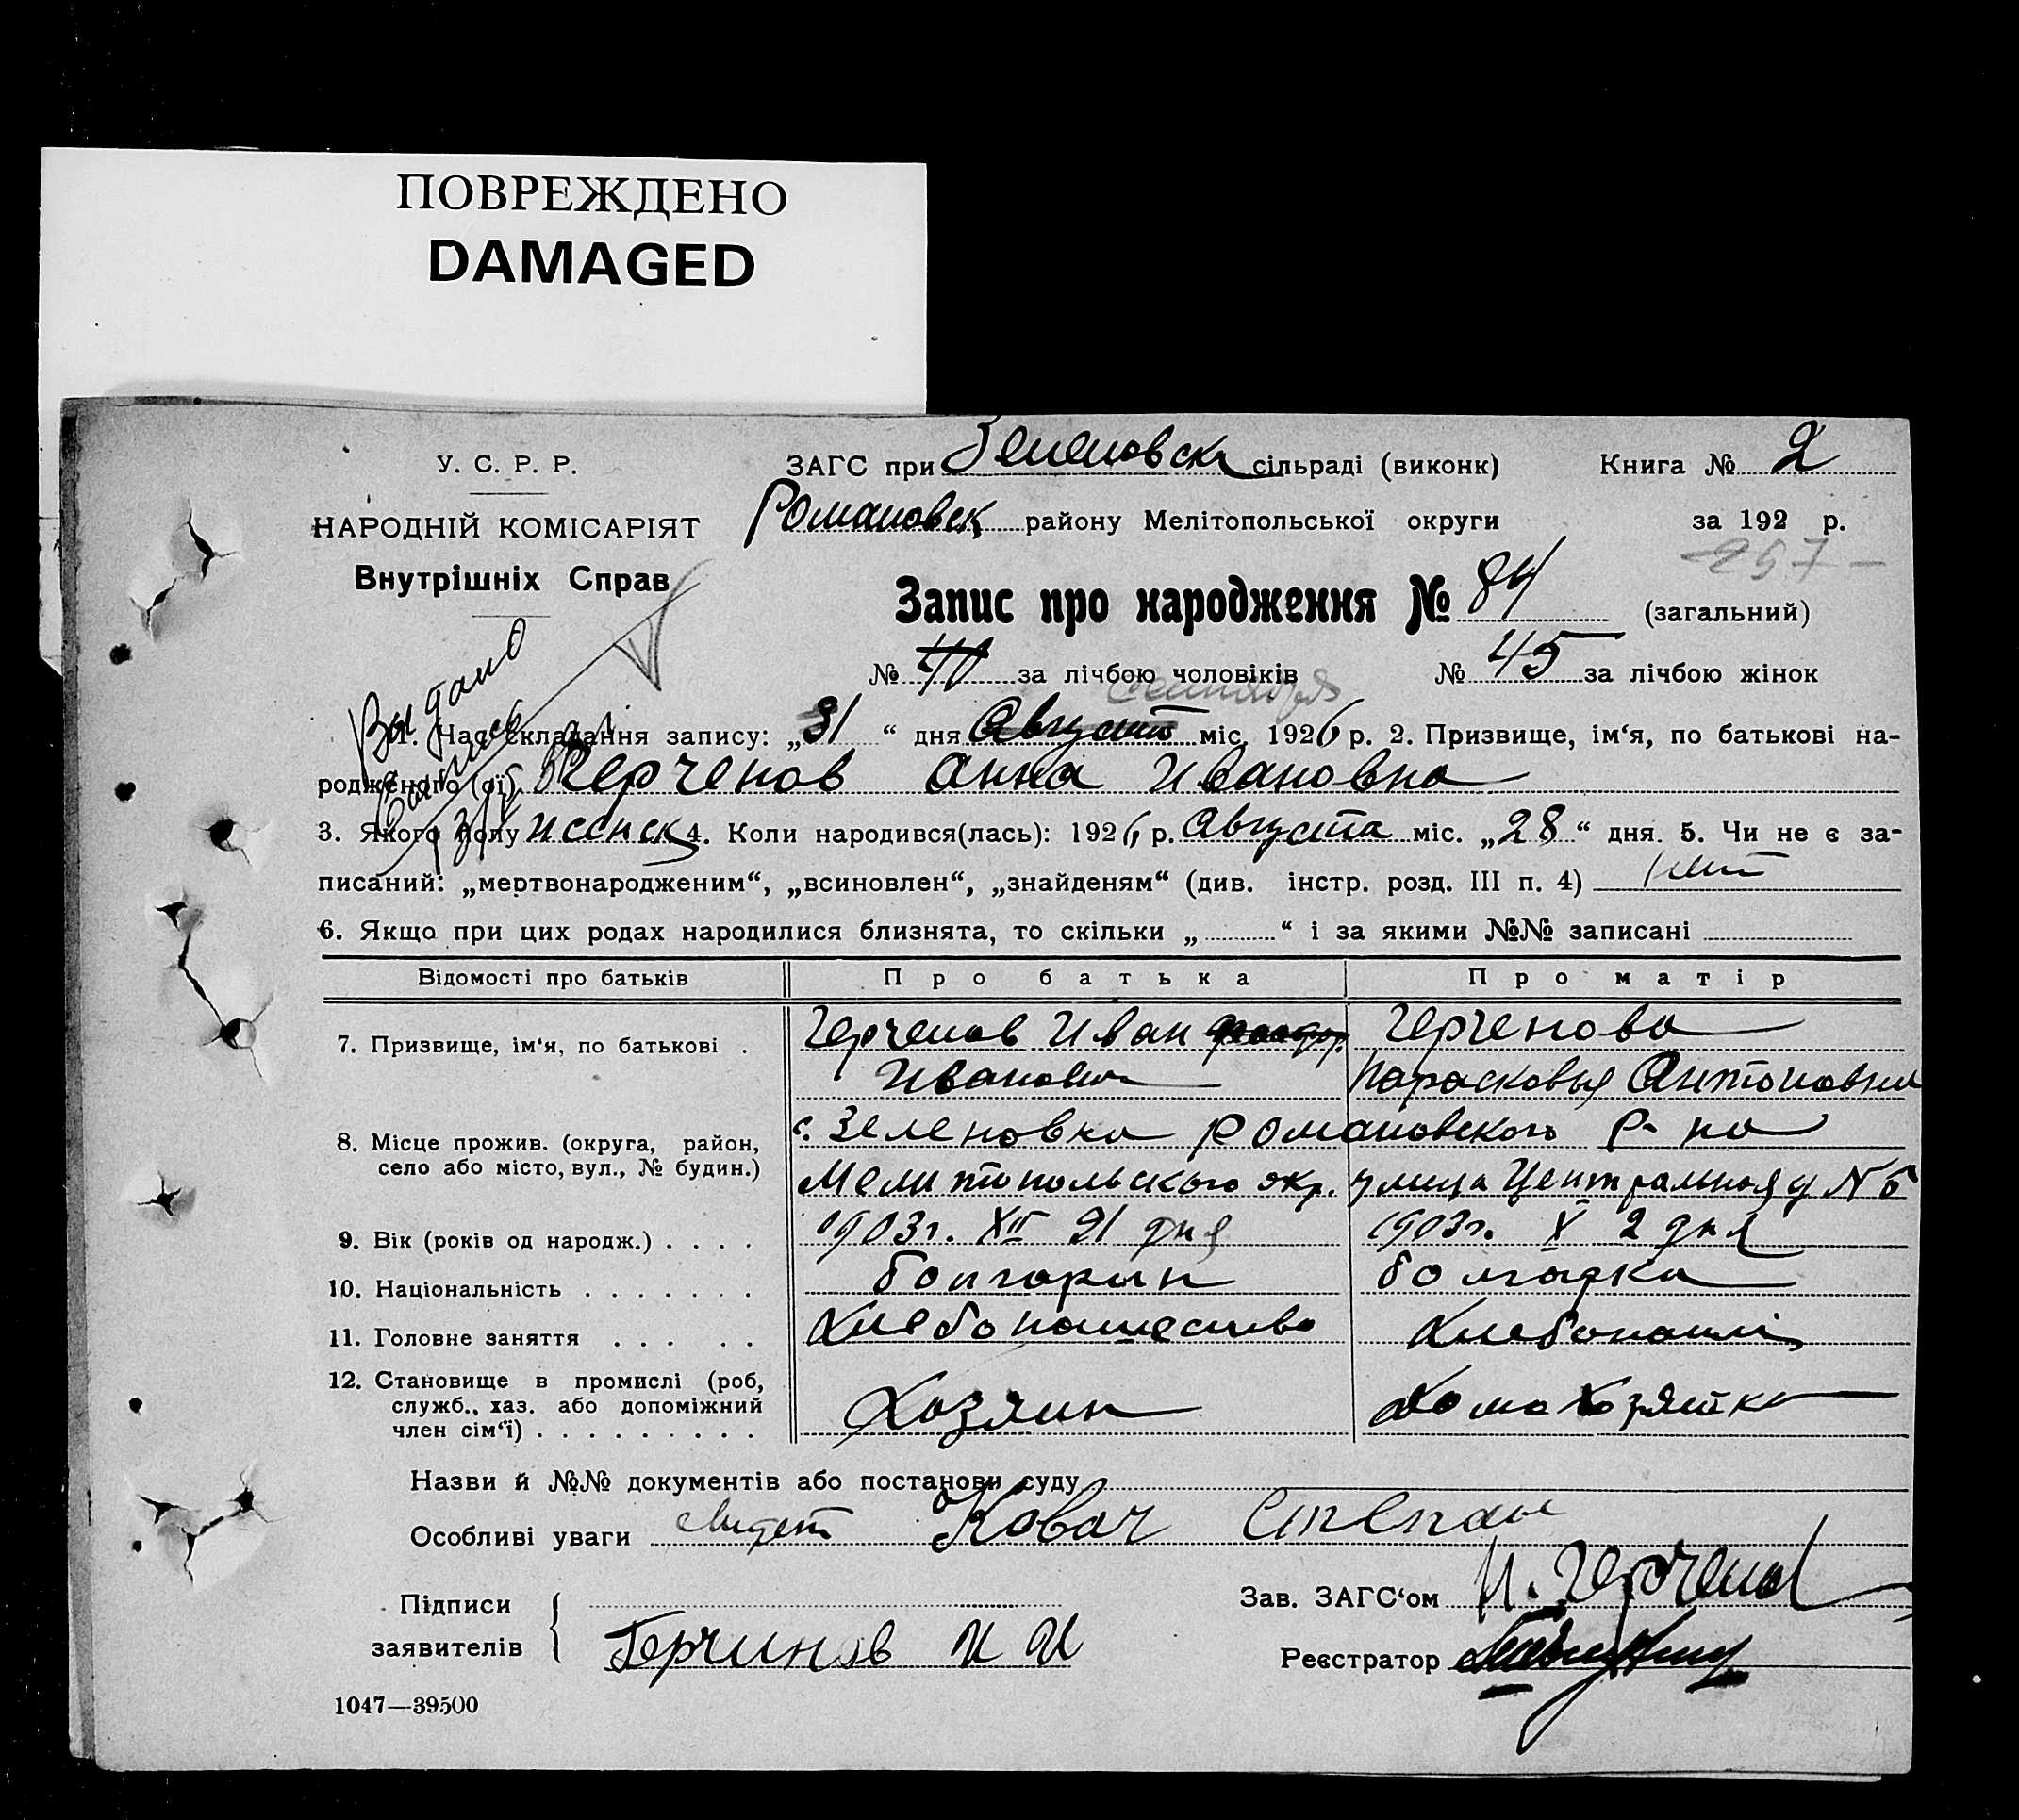 ПОВРЕЖДЕНО
DAMAGED
У. С. Р. Р.
НАРОДНІЙ КОМІСАРІЯТ
Внутрішніх Справ
ЗАГС при Зеленовск сільраді (виконк) Книга № 2
Романовск району Мелітопольської округи за 192 р.
257
Запис про народження № 84 (загальний)
№ за лічбою чоловіків № 45 за лічбою жінок
сентября
Выдано
выпись
1. Час складання запису: „31“ дня Августа міс. 1926 р. 2. Призвище, ім‘я, по батькові на-
родженого (ої) Герченов Анна Ивановна
3. Якого полу женск 4. Коли народився(лась): 1926 р. Августа міс. „28“ дня. 5. Чи не є за-
писаний: „мертвонародженим“, „всиновлен“, „знайденям“ (див. інстр. розд. III п. 4) нет
6. Якщо при цих родах народилися близнята, то скільки „ “ і за якими №№ записані
Відомості про батьків Про батька Про матір
7. Призвище, ім‘я, по батькові . Герченов Иван Иванович Герченова Парасковья Антоновна
8. Місце прожив. (округа, район, село або місто, вул., № будин.) с. Зеленовка Романовского р-на
Мелитопольского окр. улица Центральная д № 5
9. Вік (років од народж.) . . . . 1903г. XII 21 дня 1903г. X 2 дня
10. Національність . . . . . . . болгарин болгарка
11. Головне заняття . . . . . Хлебопашество Хлебопаш
12. Становище в промислі (роб, служб., хаз. або допоміжний член сім‘ї) . . . . . . . . . Хозяин Домохозяйка
Назви й №№ документів або постанови суду
Особливі уваги свидет Ковач Степан
Підписи заявителів Герчинов И И
Зав. ЗАГС‘ом И. Герченов
Реєстратор
1047—39500